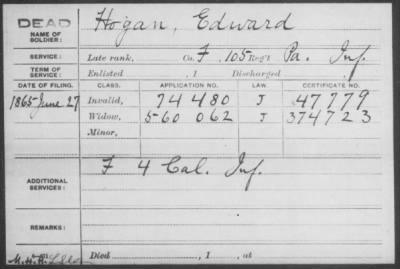 DEAD Hogan, Edward
NAME OF SOLDIER:
SERVICE: Late rank, Co. F, 105 Reg't Pa. Inf.
TERM OF SERVICE: Enlisted , 1 Discharged
DATE OF FILING. CLASS. APPLICATION NO. LAW. CERTIFICATE NO.
1865 June 27 Invalid, 74480 J 47779
Widow, 560062 J 374723
Minor,
ADDITIONAL SERVICES: F 4 Cal. Inf.
REMARKS:
Died , 1 , at